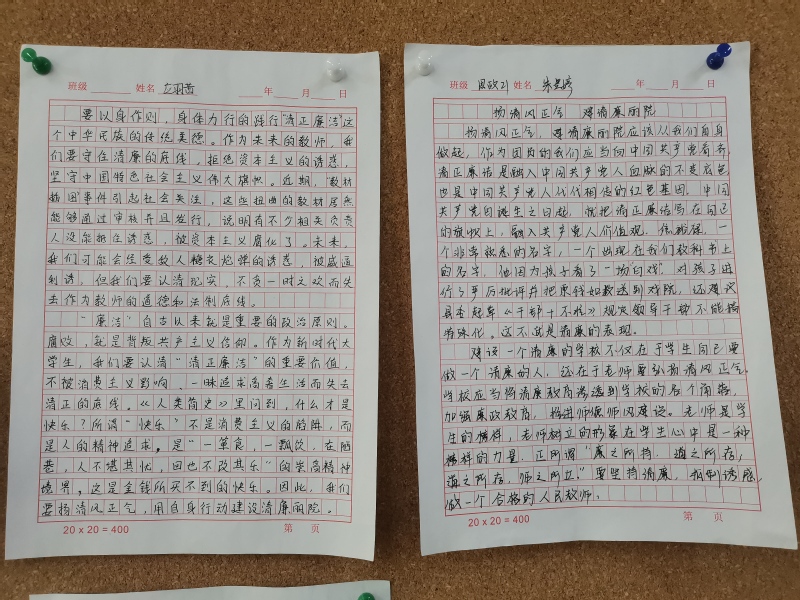 班级 姓名
年 月 日
要以身作则，身体力行的践行“清正廉洁”这
个中华民族的传统美德。作为未来的教师，我
们要守住清廉的底线，拒绝资本主义的诱惑，
坚守中国特色社会主义伟大旗帜。近期，“教材
插图事件引起社会关注，这些扭曲的教材居然
能够通过审核并且发行，说明有不少相关负责
人没能抵住诱惑，被资本主义腐化了。未来，
我们可能会经受敌人糖衣炮弹的诱惑，被威逼
利诱，但我们要认清现实，不贪一时之欢而失
去作为教师的道德和法制底线。
“廉洁”自古以来就是重要的政治原则。
腐败，就是背叛共产主义信仰。作为新时代大
学生，我们要认清“清正廉洁”的重要价值，
不被消费主义影响，一味追求高奢生活而失去
清正的底线。《人类简史》里问到，什么才是
快乐？所谓“快乐”不是消费主义的陷阱，而
是人的精神追求，是“一箪食，一瓢饮，在陋
巷，人不堪其忧，回也不改其乐”的崇高精神
境界，这是金钱所买不到的快乐。因此，我们
要扬清风正气，用自身行动建设清廉丽院。
20 x 20 = 400
第 页
班级 思政21 姓名
年 月 日
扬清风正气 建清廉丽院
扬清风正气，建清廉丽院应该从我们自身
做起，作为团员的我们应当向中国共产党看齐，
清正廉洁是融入中国共产党人血脉的不变底色，
也是中国共产党人代代相传的红色基因。中国
共产党自诞生之日起，就把清正廉洁写在自己
的旗帜上，融入共产党人价值观。焦裕禄，一
个非常熟悉的名字，一个出现在我们教科书上
的名字，他因为孩子看了一场“白戏”，对孩子进
行了严厉批评并把票钱如数送到戏院，还建议
县委起草《干部十不准》规定领导干部不能搞
特殊化。这不就是清廉的表现。
建设一个清廉的学校不仅在于学生自己要
做一个清廉的人，还在于老师要弘扬清风正气。
学校应当将清廉教育渗透到学校的各个角落，
加强廉政教育，推进师德师风建设。老师是学
生的榜样，老师树立的形象在学生心中是一种
榜样的力量，正所谓“廉之所持，道之所存；
道之所存，师之所立。”要坚持清廉，抵制诱惑，
做一个合格的人民教师。
20 x 20 = 400
第 页